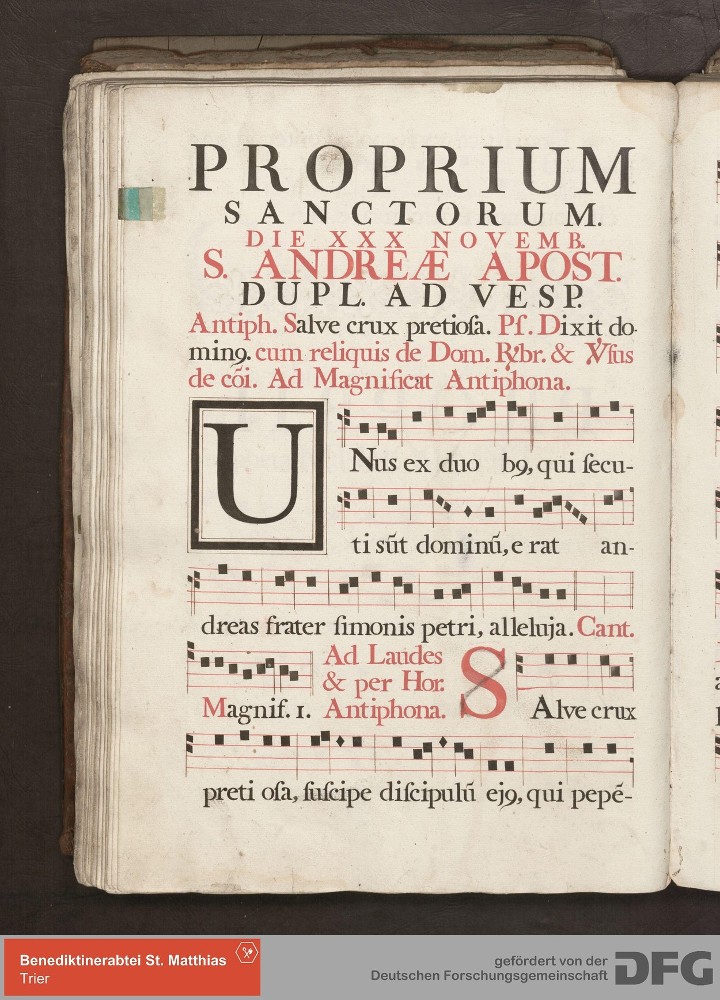 PROPRIUM
SANCTORUM.
DIE XXX NOVEMB.
S. ANDREÆ APOST.
DUPL. AD VESP.
Antiph. Salve crux pretioſa. Pſ. Dixit do-
minꝰ. cum reliquis de Dom. R℣br. & ℣ſus
de cōi. Ad Magnificat Antiphona.
UNus ex duo bꝰ, qui ſecu-
ti sūt dominū, e rat an-
dreas frater ſimonis petri, alleluja. Cant.
Magnif. 1.
Ad Laudes
& per Hor.
Antiphona.
SAlve crux
preti oſa, ſuſcipe diſcipulū ejꝰ, qui pepē-
Benediktinerabtei St. Matthias
Trier
gefördert von der
Deutschen Forschungsgemeinschaft
DFG